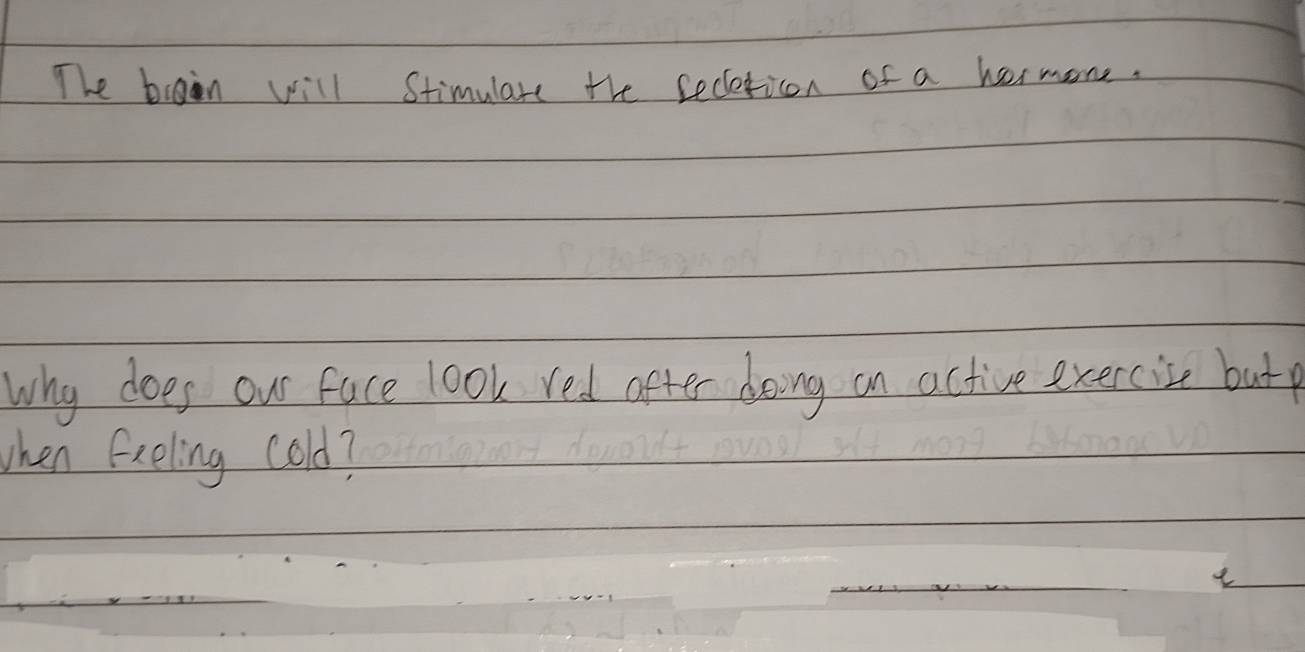 The brain will Stimulate the secretion of a hormone.
Why does our face look red after doing an active exercise but p
when feeling cold?